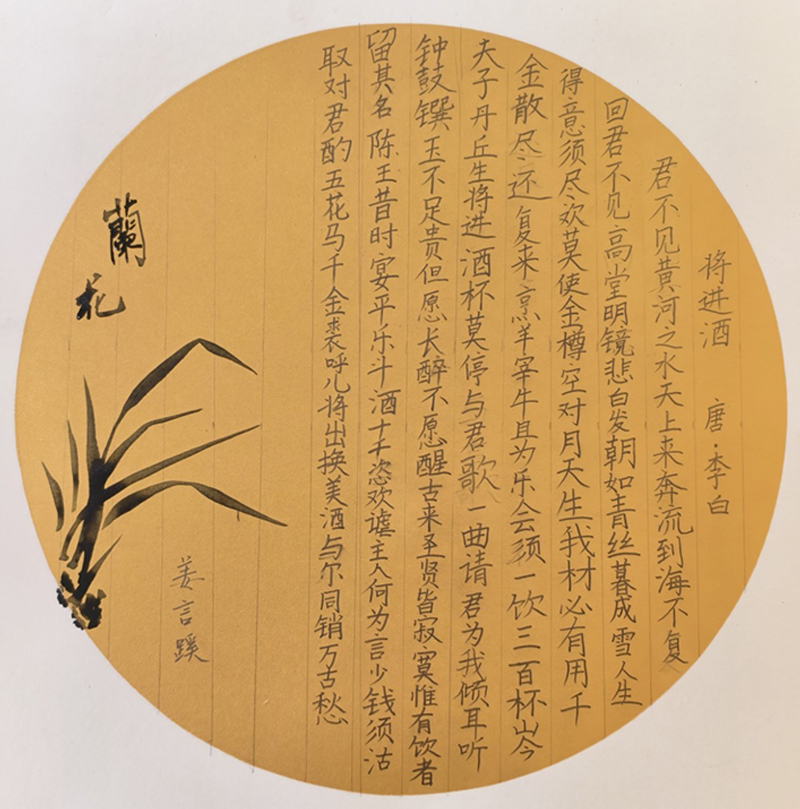 将进酒 唐·李白
君不见黄河之水天上来奔流到海不复
回君不见高堂明镜悲白发朝如青丝暮成雪人生
得意须尽欢莫使金樽空对月天生我材必有用千
金散尽还复来烹羊宰牛且为乐会须一饮三百杯岑
夫子丹丘生将进酒杯莫停与君歌一曲请君为我倾耳听
钟鼓馔玉不足贵但愿长醉不愿醒古来圣贤皆寂寞惟有饮者
留其名陈王昔时宴平乐斗酒十千恣欢谑主人何为言少钱须沽
取对君酌五花马千金裘呼儿将出换美酒与尔同销万古愁
姜言蹊
蘭花